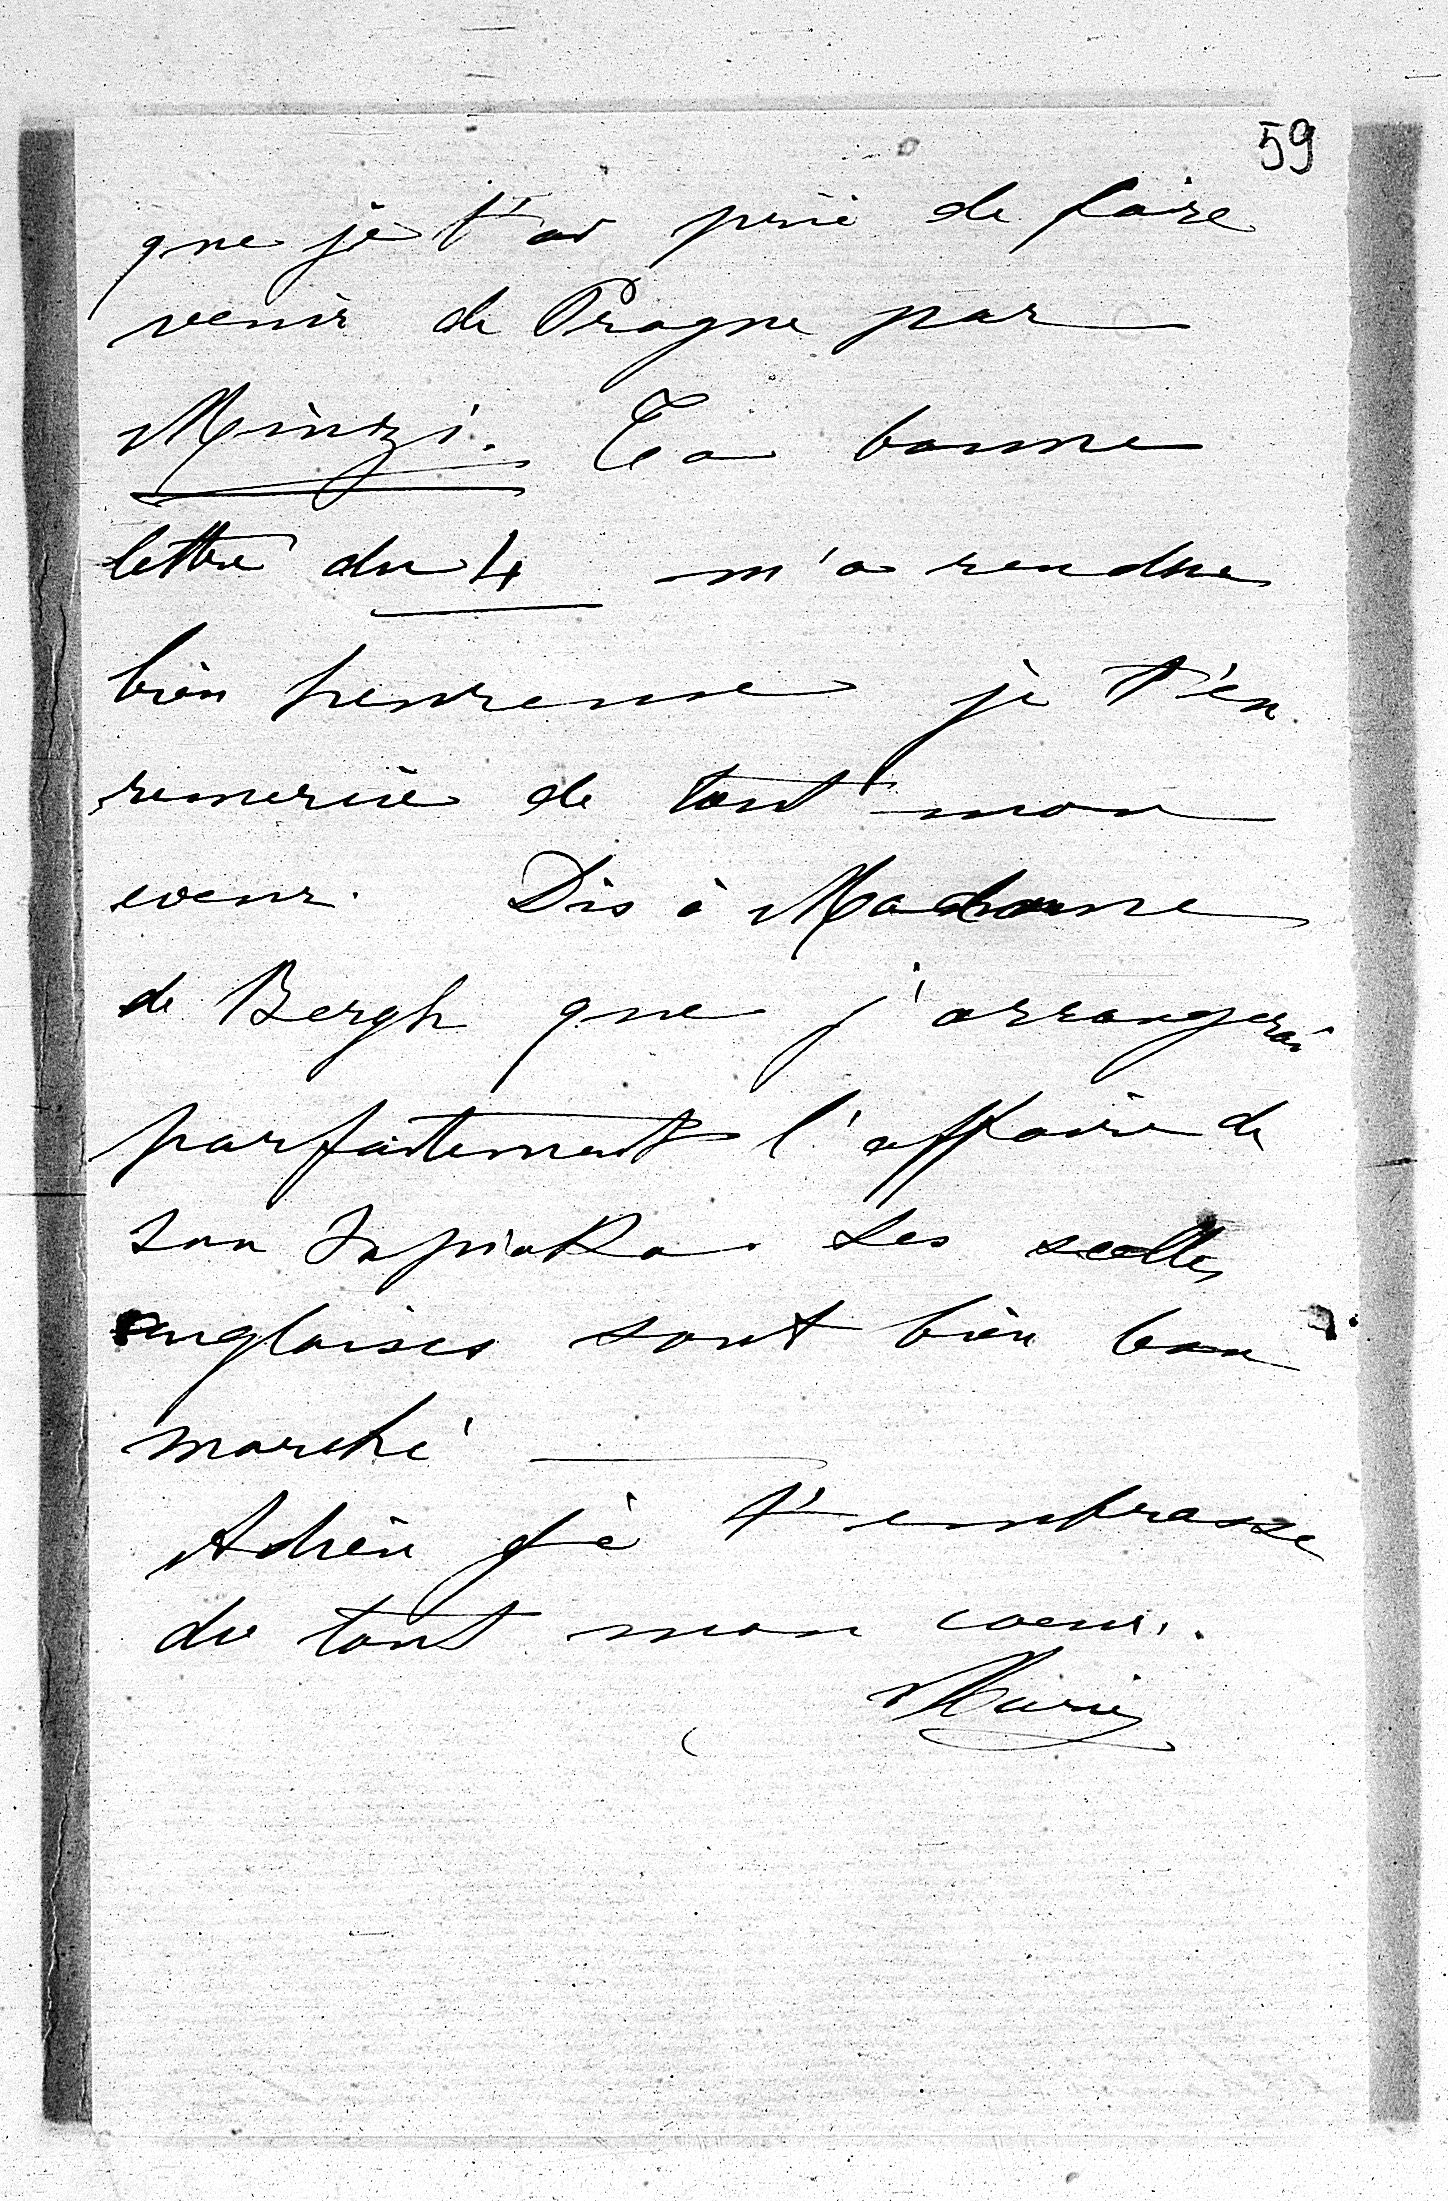 59
que je t'ai prié de faire
venir de Prague par
Minzi. Ta bonne
lettre du 4 m'a rendue
bien heureuse je t'en
remercie de tout mon
coeur. Dis à Madame
de Bergh que j'arrangerai
parfaitement l'affaire de
son Tapioka. Les selles
anglaises sont bien bon
marché
Adieu je t'embrasse
de tout mon coeur.
Marie